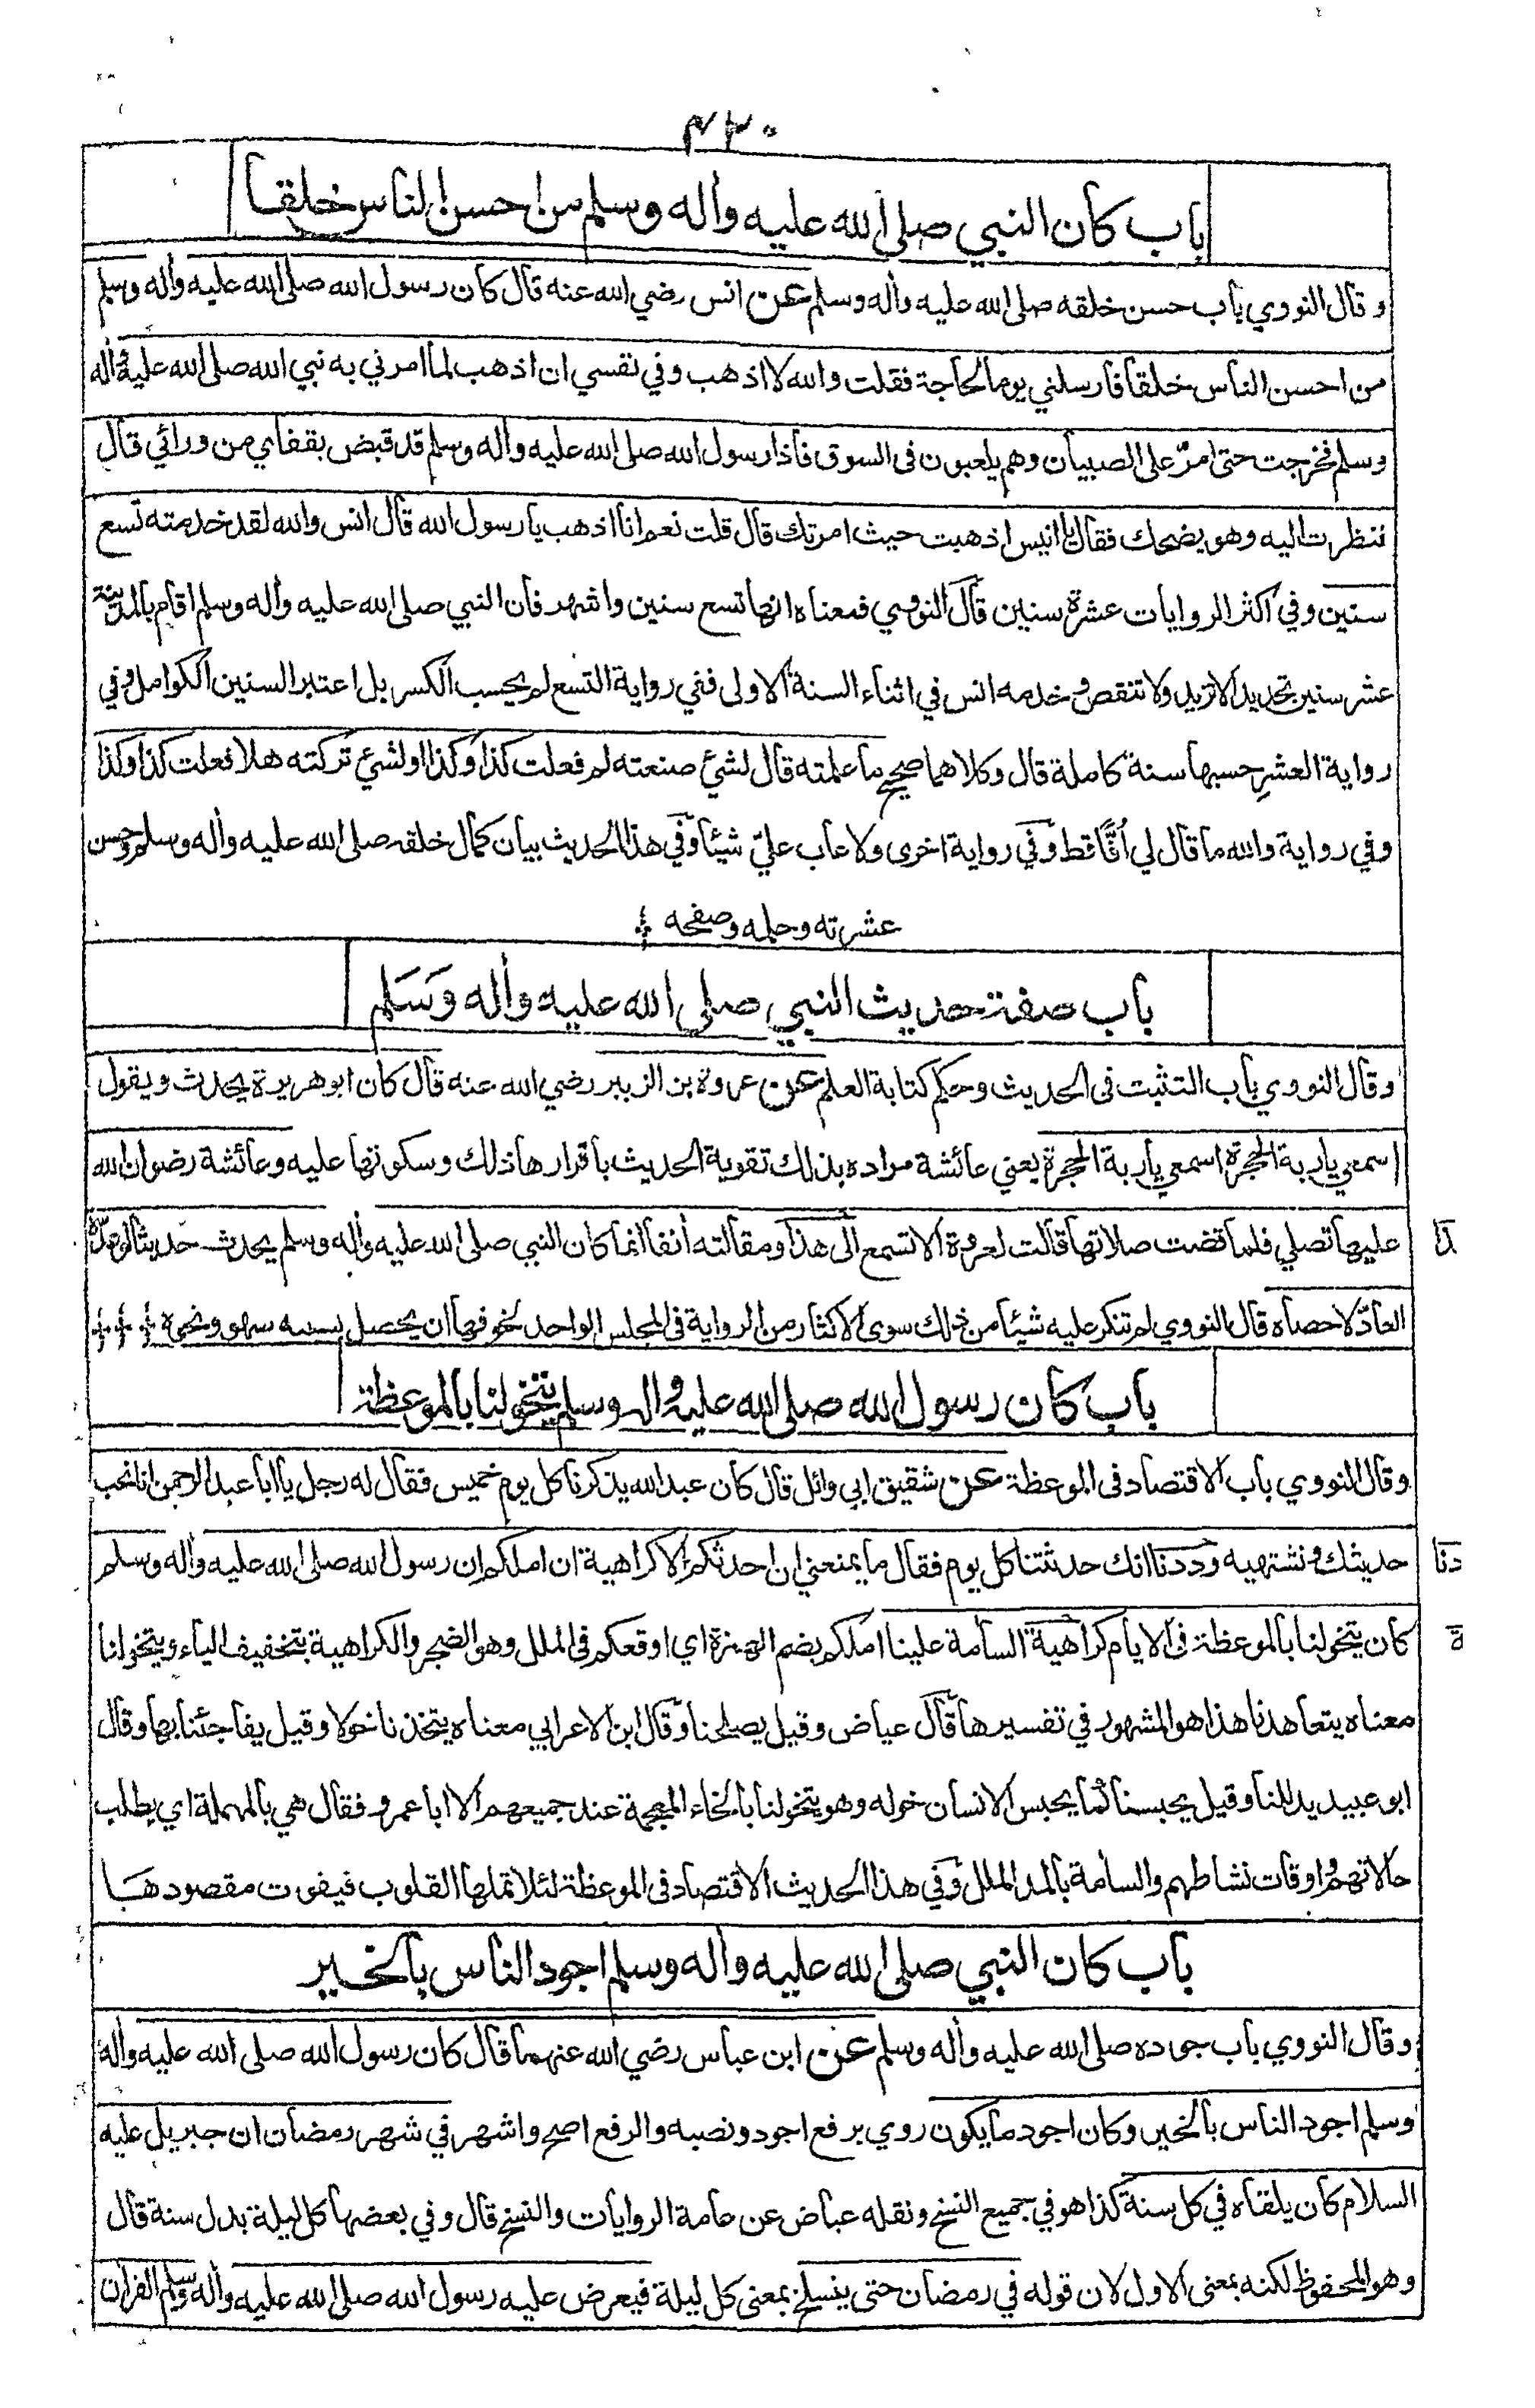 ٤٣٠
باب كان النبي صلى الله عليه وأله وسلم من احسن الناس خلقا
وقال النووي باب حسن خلقه صلى الله عليه وأله وسلم عن انس رضي الله عنه قال كان رسول الله صلى الله عليه وأله وسلم
من احسن الناس خلقا فأرسلني يوما لحاجة فقلت والله لا اذهب وفي نفسي ان اذهب لما امرني به نبي الله صلى الله عليه وأله
وسلم فخرجت حتى امرّ على الصبيان وهم يلعبون فى السوق فأذا رسول الله صلى الله عليه وأله وسلم قد قبض بقفاي من ورائي قال
فنظرت اليه وهو يضحك فقال يا انيس اذهبت حيث امرتك قال قلت نعم انا اذهب يا رسول الله قال انس والله لقد خدمته تسع
سنين وفي اكثر الروايات عشرة سنين قال النووي فمعناه انها تسع سنين واشهر فان النبي صلى الله عليه وأله وسلم اقام بالمدينة
عشر سنين تحديدا لا تزيد ولا تنقص وخدمه انس في اثناء السنة الاولى ففي رواية التسع لم يحسب الكسر بل اعتبر السنين الكوامل وفي
رواية العشر حسبها سنة كاملة قال وكلاهما صحيح ما علمته قال لشئ صنعته لم فعلت كذا وكذا او لشئ تركته هلا فعلت كذا وكذا
وفي رواية والله ما قال لي أفًّا قط وفي رواية اخرى ولا عاب عليّ شيئا وفي هذا الحديث بيان كمال خلقه صلى الله عليه وأله وسلم وحسن
عشرته وحلمه وصفحه
باب صفة حديث النبي صلى الله عليه وأله وَسَلم
وقال النووي باب التثبت فى الحديث وحكم كتابة العلم عن عروة بن الزبير رضي الله عنه قال كان ابو هريرة يحدث ويقول
اسمعي يا ربة الحجرة اسمعي يا ربة الحجرة يعني عائشة مراده بذلك تقوية الحديث باقرارها ذلك وسكوتها عليه وعائشة رضوان الله
عليها تصلي فلما قضت صلاتها قالت لعروة الا تسمع الى هذا ومقالته أنفا انما كان النبي صلى الله عليه وأله وسلم يحدث حديثا لو عدّه
العادّ لاحصاه قال النووي لم تنكر عليه شيئا من ذلك سوى الاكثار من الرواية فى المجلس الواحد لخوفها ان يحصل بسببه سهو ونحوه
باب كان رسول الله صلى الله عليه واله وسلم يتخولنا بالموعظة
وقال النووي باب الاقتصاد فى الموعظة عن شقيق ابي وائل قال كان عبد الله يذكرنا كل يوم خميس فقال له رجل يا ابا عبد الرحمن انا نحب
حديثك ونشتهيه ووددنا انك حدثتنا كل يوم فقال ما يمنعني ان احدثكم الا كراهية ان املكم ان رسول الله صلى الله عليه وأله وسلم
كان يتخولنا بالموعظة فى الايام كراهية السأمة علينا املكم بضم الهمزة اي اوقعكم فى الملل وهو الضجر والكراهية بتخفيف الياء ويتخولنا
معناه يتعاهدنا هذا هو المشهور في تفسيرها قال عياض وقيل يصلحنا وقال ابن الاعرابي معناه يتخذنا خولا وقيل يفاجئنا بها وقال
ابو عبيد يدللنا وقيل يحبسنا كما يحبس الانسان خوله وهو يتخولنا بالخاء المعجمة عند جميعهم الا ابا عمرو فقال هي بالمهملة اي يطلب
حالاتهم واوقات نشاطهم والسأمة بالمد الملل وفي هذا الحديث الاقتصاد فى الموعظة لئلا تملها القلوب فيفوت مقصودها
باب كان النبي صلى الله عليه وأله وسلم اجود الناس بالخير
وقال النووي باب جوده صلى الله عليه وأله وسلم عن ابن عباس رضي الله عنهما قال كان رسول الله صلى الله عليه وأله
وسلم اجود الناس بالخير وكان اجود ما يكون روي برفع اجود ونصبه والرفع اصح واشهر في شهر رمضان ان جبريل عليه
السلام كان يلقاه في كل سنة كذا هو في جميع النسخ ونقله عياض عن عامة الروايات والنسخ قال وفي بعضها كل ليلة بدل سنة قال
وهو المحفوظ لكنه بمعنى الاول لان قوله في رمضان حتى ينسلخ بمعنى كل ليلة فيعرض عليه رسول الله صلى الله عليه وأله وسلم القرأن